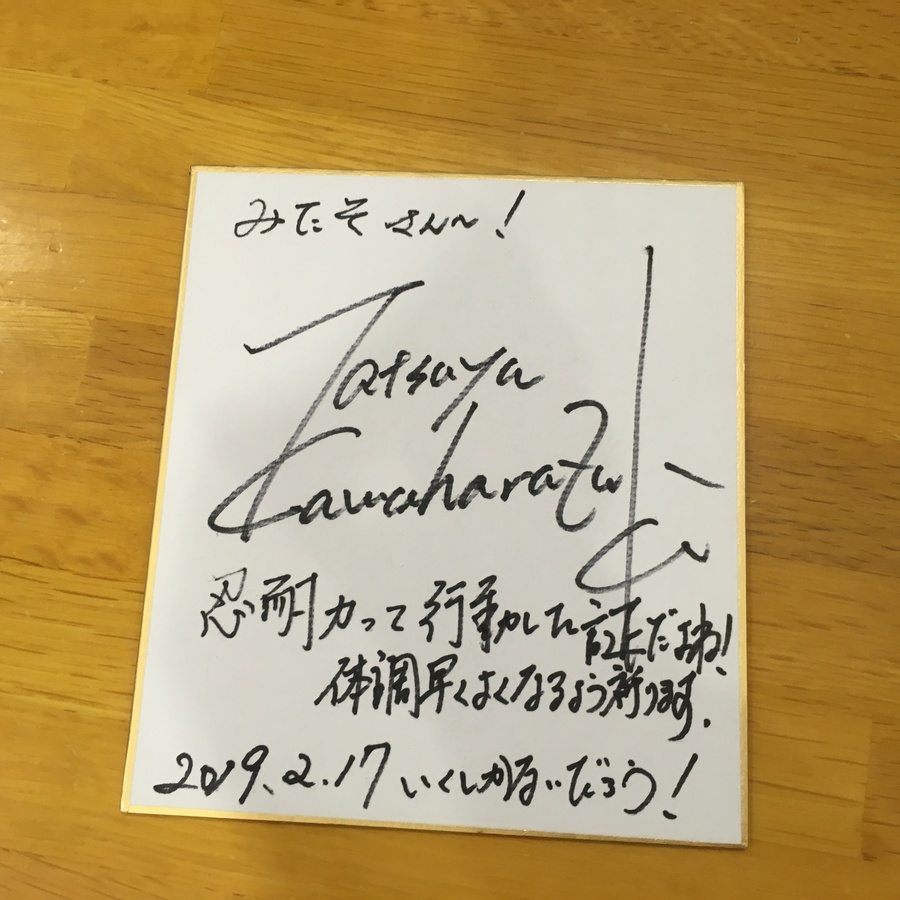 みたそさん〜!
Tatsuya
Kawaharazuka
忍耐力って行動した証だよね!
体調早くよくなるよう祈ります.
2019.2.17 いくしかないだろう!